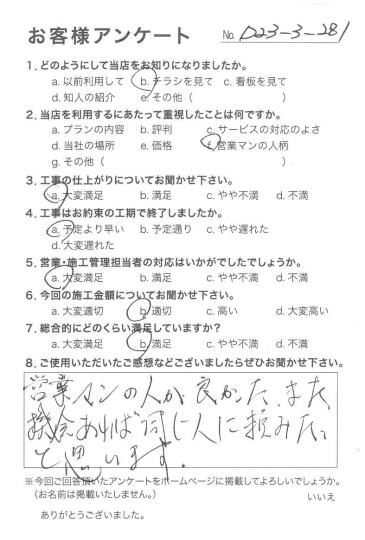 お客様アンケート No. D23-3-281
1. どのようにして当店をお知りになりましたか。
a. 以前利用して b. チラシを見て c. 看板を見て
d. 知人の紹介 e. その他（ ）
2. 当店を利用するにあたって重視したことは何ですか。
a. プランの内容 b. 評判 c. サービスの対応のよさ
d. 当社の場所 e. 価格 f. 営業マンの人柄
g. その他（ ）
3. 工事の仕上がりについてお聞かせ下さい。
a. 大変満足 b. 満足 c. やや不満 d. 不満
4. 工事はお約束の工期で終了しましたか。
a. 予定より早い b. 予定通り c. やや遅れた
d. 大変遅れた
5. 営業・施工管理担当者の対応はいかがでしたでしょうか。
a. 大変満足 b. 満足 c. やや不満 d. 不満
6. 今回の施工金額についてお聞かせ下さい。
a. 大変適切 b. 適切 c. 高い d. 大変高い
7. 総合的にどのくらい満足していますか？
a. 大変満足 b. 満足 c. やや不満 d. 不満
8. ご使用いただいたご感想などございましたらぜひお聞かせ下さい。
営業マンの人が良かった。また
機会あれば同じ人に頼みたい
と思います。
※今回ご回答頂いたアンケートをホームページに掲載してよろしいでしょうか。
（お名前は掲載いたしません。） いいえ
ありがとうございました。